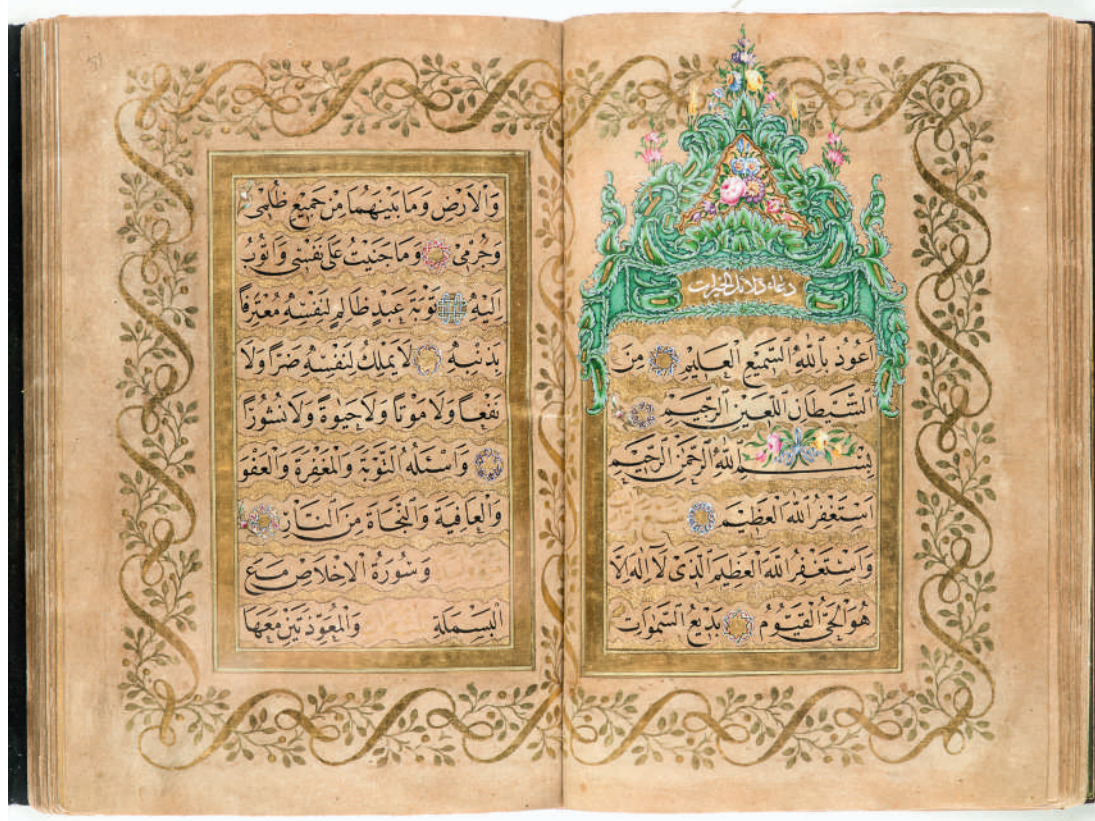 دعاء دلائل الخيرات
اَعُوذُ بِاللّٰهِ السَّمِيعِ الْعَلِيمِ مِنَ
الشَّيْطَانِ اللَّعِينِ الرَّجِيمِ
بِسْمِ اللّٰهِ الرَّحْمٰنِ الرَّحِيمِ
اَسْتَغْفِرُ اللّٰهَ الْعَظِيمَ
وَاَسْتَغْفِرُ اللّٰهَ الْعَظِيمَ الَّذِى لَآ اِلٰهَ اِلَّا
هُوَ الْحَىُّ الْقَيُّومُ بَدِيعُ السَّمٰوَاتِ
وَالْاَرْضِ وَمَا بَيْنَهُمَا مِنْ جَمِيعِ ظُلْمِى
وَجُرْمِى وَمَا جَنَيْتُ عَلٰى نَفْسِى وَاَتُوبُ
اِلَيْهِ تَوْبَةَ عَبْدٍ ظَالِمٍ لِنَفْسِهِ مُعْتَرِفًا
بِذَنْبِهِ لَا يَمْلِكُ لِنَفْسِهِ ضَرًّا وَلَا
نَفْعًا وَلَا مَوْتًا وَلَا حَيٰوةً وَلَا نُشُوزًا
وَاَسْئَلُهُ التَّوْبَةَ وَالْمَغْفِرَةَ وَالْعَفْوَ
وَالْعَافِيَةَ وَالنَّجَاةَ مِنَ النَّارِ
وَسُورَةُ الْاِخْلَاصِ مَعَ
الْبَسْمَلَةِ وَالْمُعَوِّذَتَيْنِ مَعَهَا